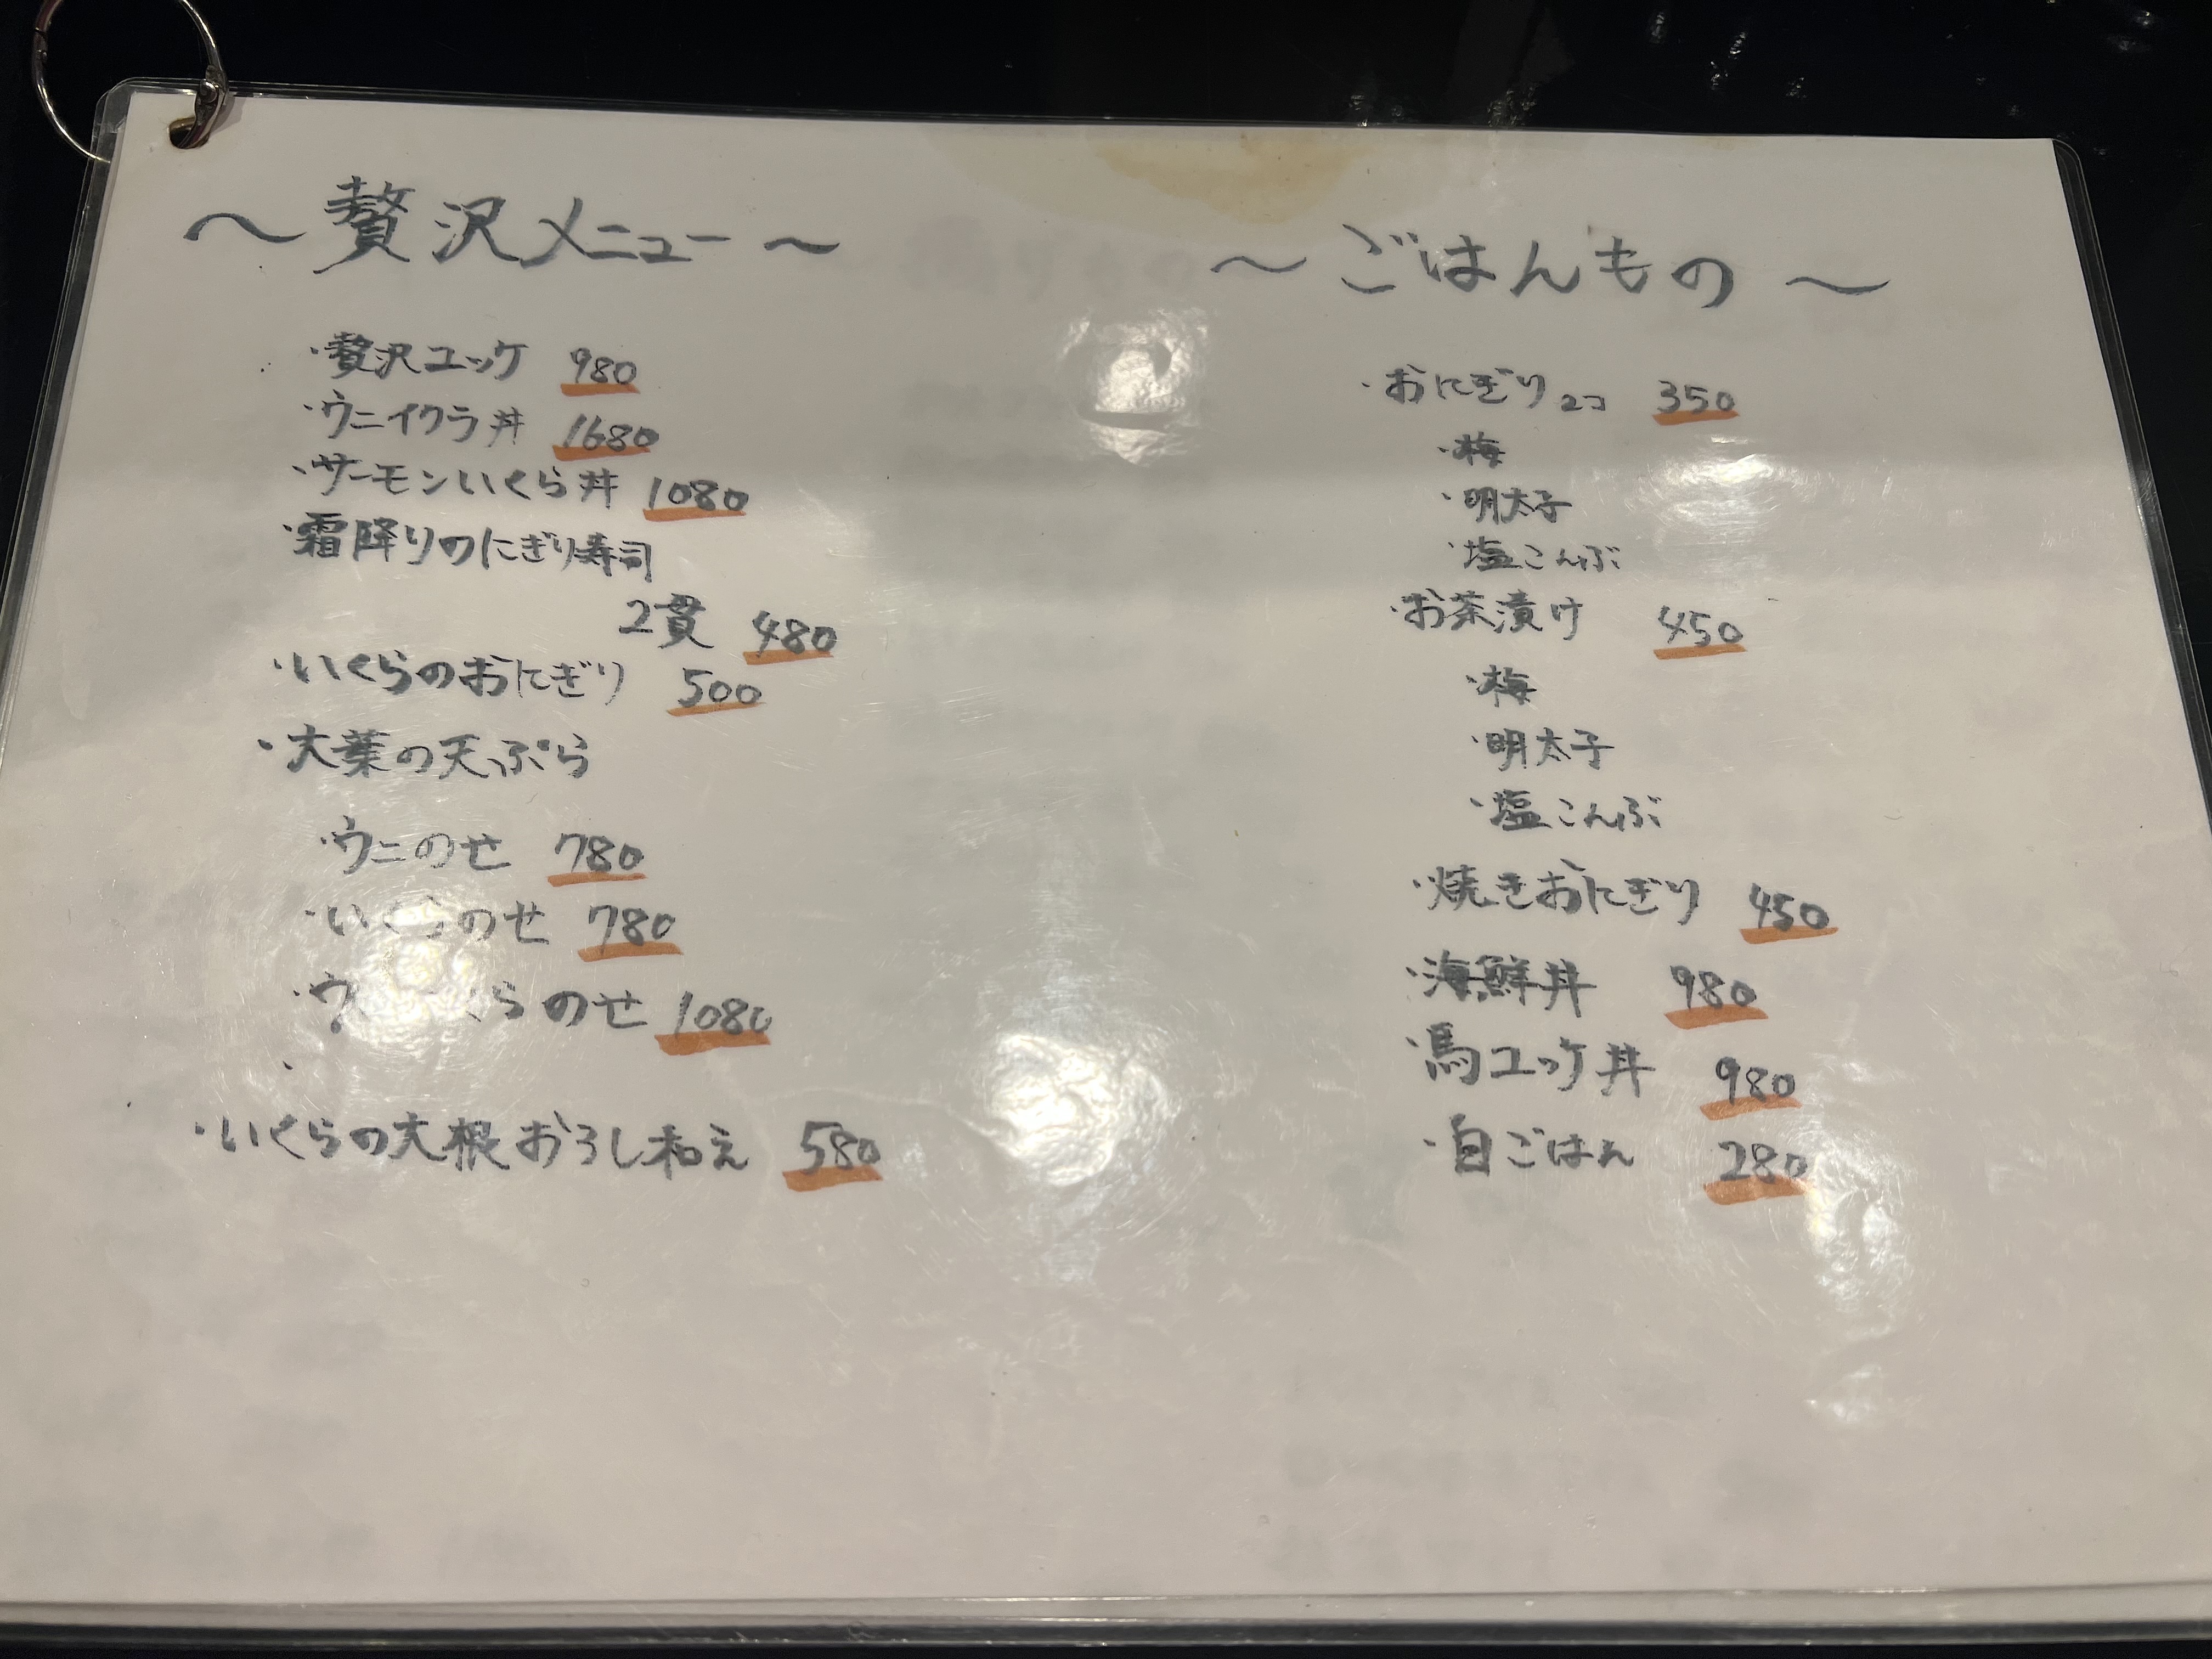 ～贅沢メニュー～
・贅沢ユッケ 980
・ウニイクラ丼 1680
・サーモンいくら丼 1080
・霜降りのにぎり寿司
2貫 480
・いくらのおにぎり 500
・大葉の天ぷら
・ウニのせ 780
・いくらのせ 780
のせ 1080
・
・いくらの大根おろし和え 580
～ごはんもの～
・おにぎり 2コ 350
・梅
・明太子
・塩こんぶ
・お茶漬け 450
・梅
・明太子
・塩こんぶ
・焼きおにぎり 450
・海鮮丼 980
・馬ユッケ丼 980
・白ごはん 280